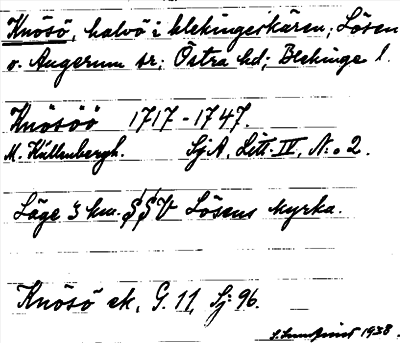 Knösö, halvö i blekingeskären; Lösen
o. Augerum sr; Östra hd; Blekinge l.
Knösöö 1717-1747.
M. Källenbergh. SjA, Litt. IV, N:o 2.
Läge 3 km. SSV Lösens kyrka.
Knösö ek, G. 11, Sj: 96.
1938.